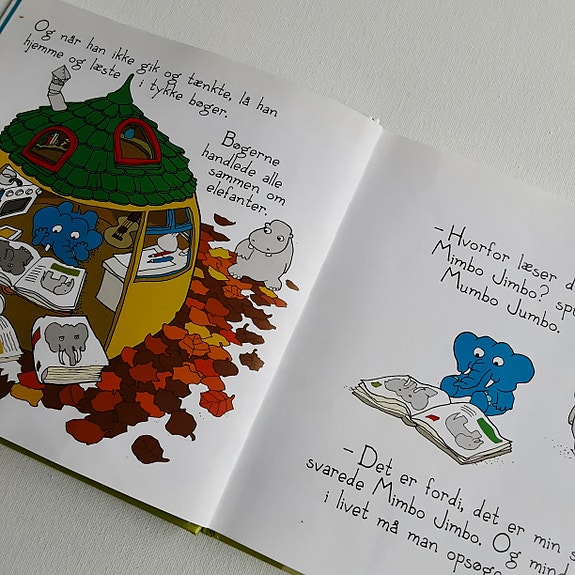 Og når han ikke gik og tænkte, lå han
hjemme og læste i tykke bøger.
Bøgerne
handlede alle
sammen om
elefanter.
- Hvorfor læser
Mimbo Jimbo?
Mumbo Jumbo.
- Det er fordi, det er min
svarede Mimbo Jimbo. Og
i livet må man